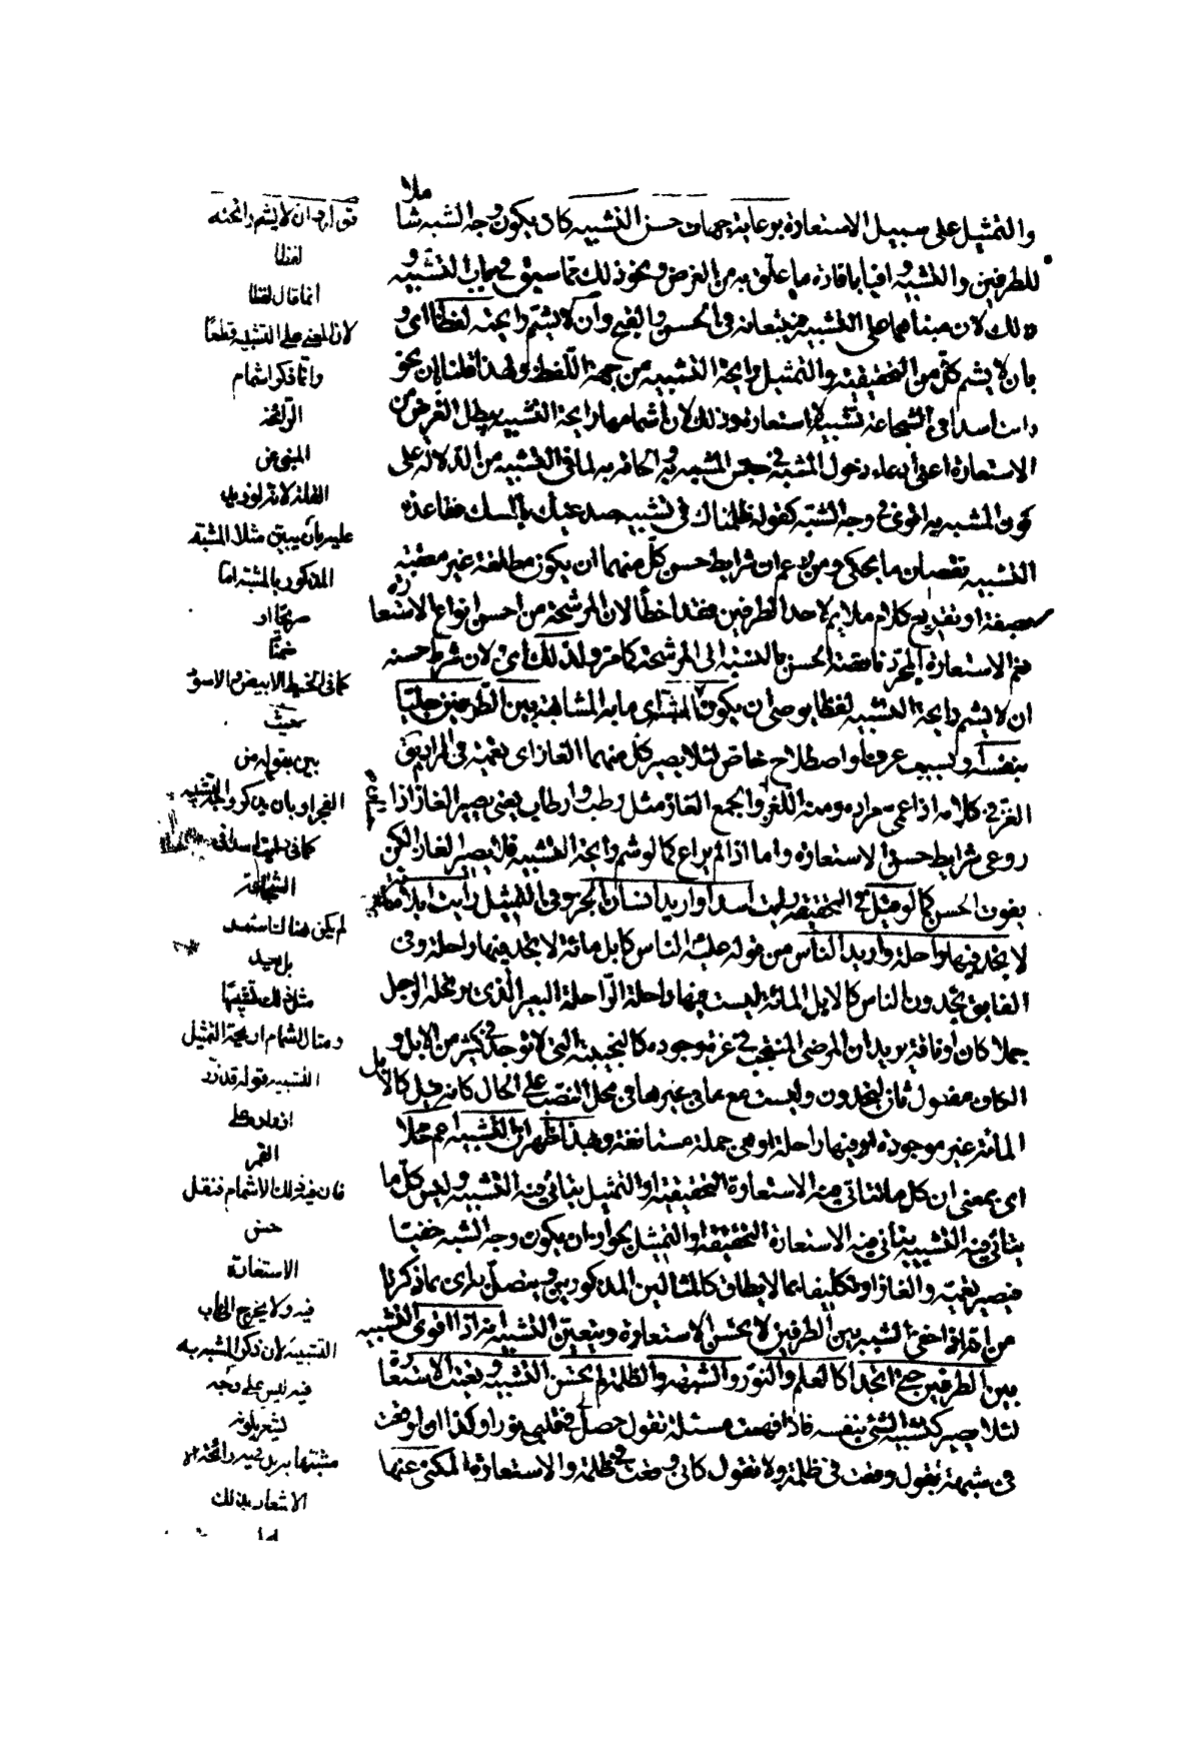 والتمثيل على سبيل الاستعارة برعاية جهات حسن التشبيه كان يكون وجه الشبه شاملا
للطرفين والتشبيه وافيا بافادة ما علق به من الغرض ونحو ذلك مما سبق في باب التشبيه و
ذلك لان مبناهما على التشبيه فيتبعانه في الحسن والقبح وان لا يشم رايحته لفظا اى و
بان لا يشم كل من التحقيقية والتمثيل رايحة التشبيه من جهة اللفظ ولهذا قلنا بان نحو
رايت اسدا في الشجاعة تشبيه لا استعارة وذلك لان اشمامهما رايحة التشبيه يبطل الغرض من
الاستعارة اعنى ادعاء دخول المشبه في جنس المشبه به والحاقه به لما في التشبيه من الدلالة على
كون المشبه به اقوى في وجه الشبه كقوله ظلمناك في تشبيه صدغيك بالمسك فقاعدة
التشبيه نقصان ما يحكى ومن زعم ان شرايط حسن كل منهما ان يكون مطلقة غير معقبة
بصفة او تفريع كلام ملايم لاحد الطرفين فقد اخطأ لان المرشحة من احسن انواع الاستعارة
نعم الاستعارة المجردة ناقصة الحسن بالنسبة الى المرشحة كما مر ولذلك اى ولان شرط حسنه
ان لا يشم رايحة التشبيه لفظا يوصى ان يكون الشبه اى ما به المشابهة بين الطرفين جليا
بنفسه او بسبب عرف او اصطلاح خاص لئلا يصير كل منهما الغازا اى تعمية في المراد يق
الغز في كلامه اذا عمى مراده ومنه اللغز والجمع الغاز مثل رطب وارطاب يعنى يصير الغازا اذا
روعى شرايط حسن الاستعارة واما اذا لم يراع كما لو شم رايحة التشبيه فلا يصير الغازا لكن
يفوت الحسن كما لو قيل في التحقيقية رايت اسدا واريد انسان ابخر وفي التمثيل رايت ابلا مائة
لا تجد فيها راحلة واريد الناس من قوله عليه الناس كابل مائة لا تجد فيها راحلة وفي
الفايق تجدون الناس كالابل المائة ليست فيها راحلة الراحلة البعير الذى يرتحله الرجل
جملا كان او ناقة يريد ان المرضى المنتجب في عزة وجوده كالنجيبة التى لا توجد في كثير من الابل و
الكاف مفعول ثان لتجدون وليست مع ما في حيزها في محل النصب على الحال كانه قيل كالابل
المائة غير موجودة فيها راحلة او هي جملة مستانفة وبهذا ظهر ان التشبيه اعم محلا
اى بمعنى ان كل ما يتاتى فيه الاستعارة التحقيقية او التمثيل يتاتى فيه التشبيه وليس كل ما
يتاتى فيه التشبيه يتاتى فيه الاستعارة التحقيقية او التمثيل لجواز ان يكون وجه الشبه خفيا
فيصير تعمية والغازا وتكليفا بما لا يطاق كالمثالين المذكورين ويتصل به اى بما ذكرنا
من انه اذا خفى الشبه بين الطرفين لا يحسن الاستعارة ويتعين التشبيه انه اذا قوى الشبه
بين الطرفين حتى اتحدا كالعلم والنور والشبهة والظلمة لم يحسن التشبيه وتعينت الاستعارة
لئلا يصير كتشبيه الشئ بنفسه فاذا فهمت مسئلة تقول حصل في قلبى نور وكذا اذا وقعت
في شبهة تقول وقعت في ظلمة ولا تقول كانى وقعت في ظلمة والاستعارة المكنى عنها
قوله ان لا يشم رائحته
لفظا
انما قال لفظا
لان المعنى على التشبيه قطعا
وانما ذكر اشمام
الرائحة
المبنى عن
القلة لانه لو زيد
عليه بان يبين مثلا المشبه
المذكور بالمشبه اما
صريحا او
ضمنا
كما في الخيط الابيض والاسود
حيث
بين بقوله من
الفجر او بان يذكر وجه التشبيه
كما في رايت اسدا في
الشجاعة
لم يكن هناك استعد
بل يعد
مثل ذلك تشبيها
ومثال اشمام رايحة التمثيل
التشبيه قوله قد زر
ازراره على
القمر
فان فيه ذلك الاشمام فنقل
حسن
الاستعارة
فيه ولا يخرج الى باب
التشبيه لان ذكر المشبه به
فيه ليس على وجه
يشعر بكونه
مشبها به بل فيه رائحة
الاشعار بذلك